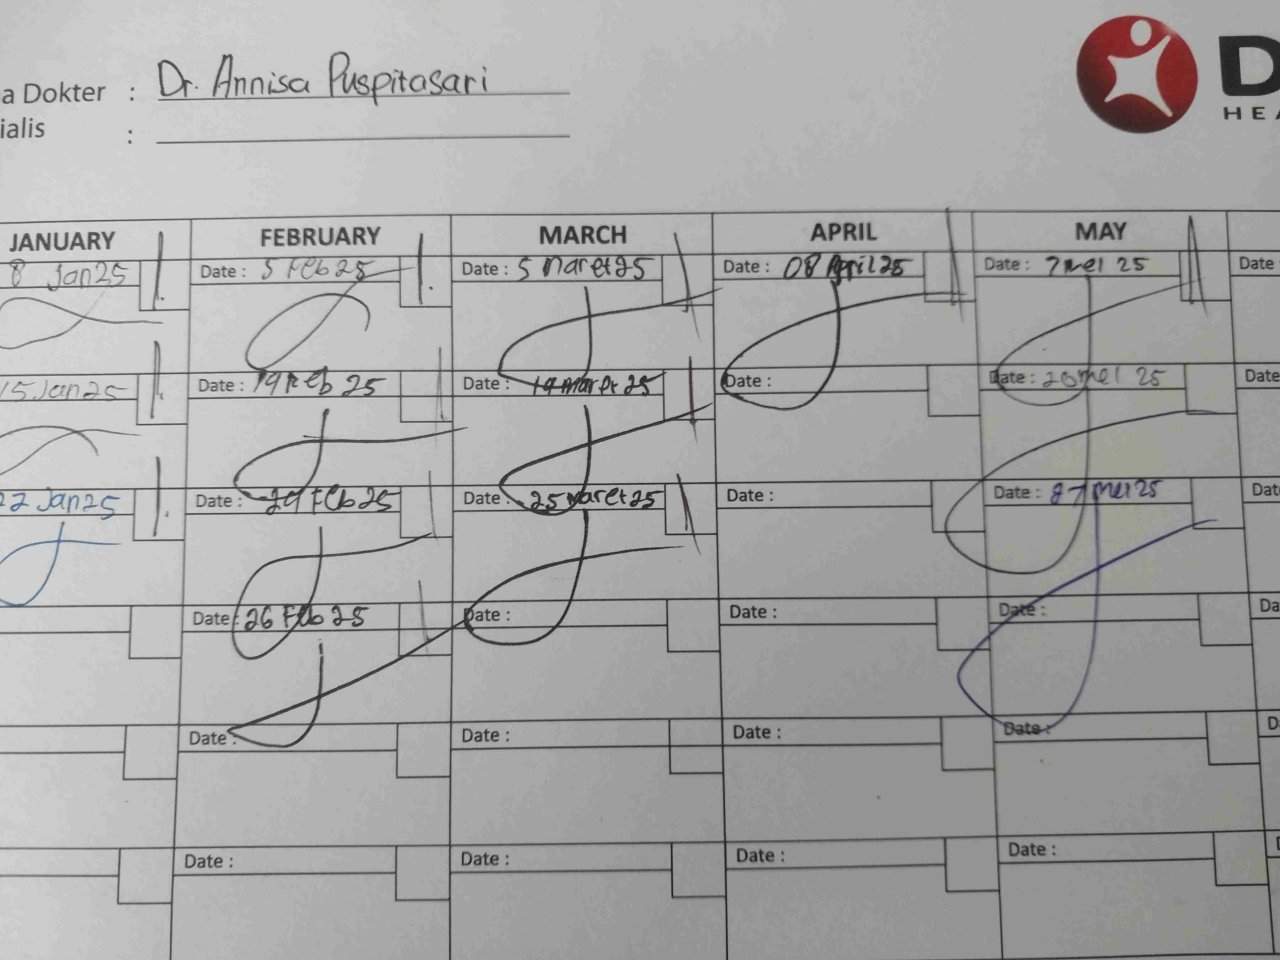 a Dokter : Dr. Annisa Puspitasari
ialis :
D
HEA
JANUARY FEBRUARY MARCH APRIL MAY
8 Jan 25 Date : 5 Feb 25 Date : 5 Maret 25 Date : 08 April 25 Date : 7 Mei 25 Date
15 Jan 25 Date : 19 Feb 25 Date : 19 Maret 25 Date : Date : 20 Mei 25 Date
22 Jan 25 Date : Feb 25 Date : 25 Maret 25 Date : Date : 27 Mei 25 Dat
Date : 26 Feb 25 Date : Date : Date : Da
Date : Date : Date : Date : D
Date : Date : Date : Date :